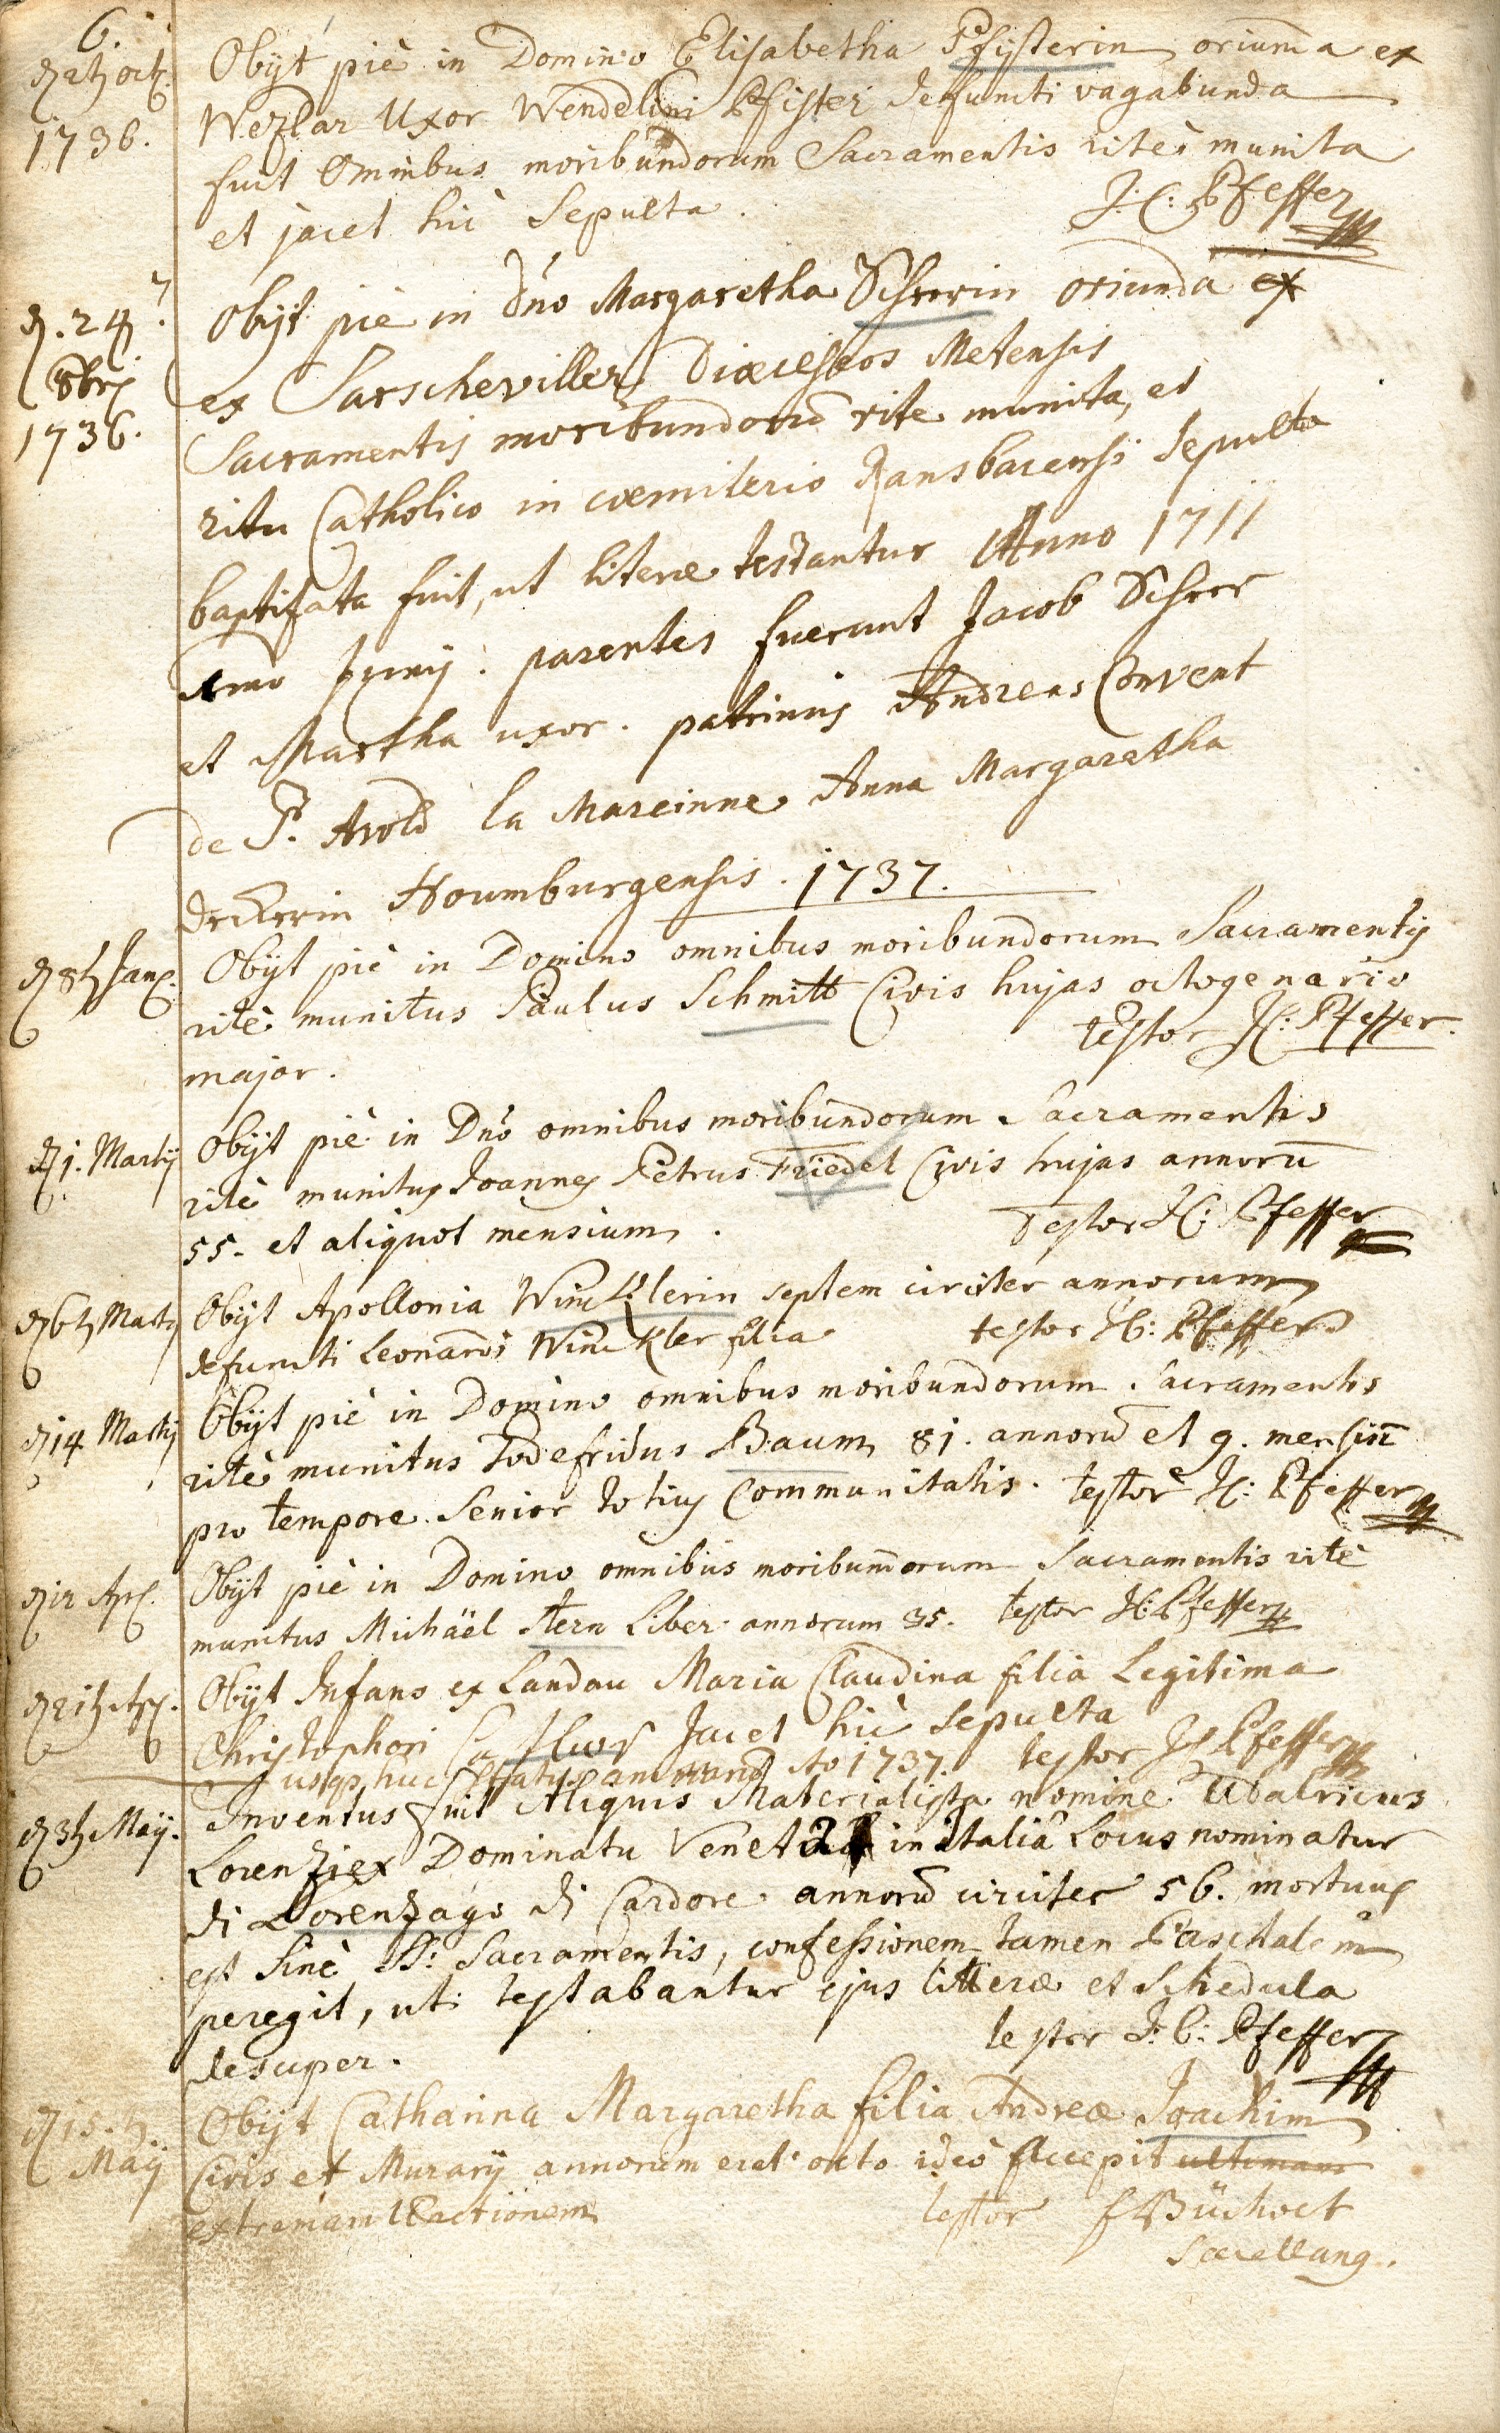 6.
d 2t oct.
1736.
Obijt piè in Domino Elisabetha Pfisterin oriunda ex
Wezlar Uxor Wendelini Pfister defuncti vagabunda
fuit omnibus moribundorum Sacramentis ritè munita
et jacet hic Sepulta.
J:C: Pfeffer
d. 24
8bris
1736.
Obijt piè in Dño Margaretha Scherrin oriunda ex
ex Sarscheviller Dioeceseos Metensis
Sacramentis moribundorū rite munita, et
ritu Catholico in coemiterio Ransbacensi sepulta
baptizata fuit, ut literæ testantur Anno 1711
Junij. parentes fuerunt Jacob Scherr
et Martha uxor. patrinus Andreas Convent
de St. Avold la Mareinne Anna Margaretha
Deckerin Houmburgensis. 1737.
d 8t Jan.
Obijt piè in Domino omnibus moribundorum Sacramentis
ritè munitus Paulus Schmitt Civis hujas octogenario
major.
testor J:C: Pfeffer.
d 1. Martij
Obijt piè in Dño omnibus moribundorum Sacramentis
ritè munitus Joannes Petrus Friedel Civis hujas annorū
55. et aliquot mensium.
Testor J:C: Pfeffer
d 6t Martij
Obijt Apollonia Wincklerin septem circiter annorum
defuncti Leonardi Winckler filia
testor J:C: Pfeffer
d 14 Martij
Obijt piè in Domino omnibus moribundorum Sacramentis
ritè munitus Godefridus Baum 81. annorū et 9. mensiū
pro tempore Senior totius Communitatis. testor J:C: Pfeffer
d 12 Apr.
Obijt piè in Domino omnibus moribundorum Sacramentis ritè
munitus Michäel Stern Liber annorum 35. testor J:C: Pfeffer
d 21t Apr.
Obijt Infans ex Landau Maria Claudina filia Legitima
Christophori Jacet hic Sepulta
testor J:C: Pfeffer
usqs huc Ao 1737.
d 3t Maij.
Inventus fuit Aliquis Materialista nomine Udalricus
Lorenzi ex Dominatu Venet in Italiâ Locus nominatur
di Lorenzago di Cardore annorū circiter 56. mortuus
est sinè SS: Sacramentis, confessionem tamen Paschalem
peregit, uti testabantur ejus litteræ et Schedula
desuper.
testor J:C: Pfeffer
d 15. t
Maij
Obijt Catharina Margaretha filia Andreæ Joachim
Civis et Murarij annorum erat octo ideo accepit ultimam
extremam Unctionem
testor Büchoct
Sacellang.